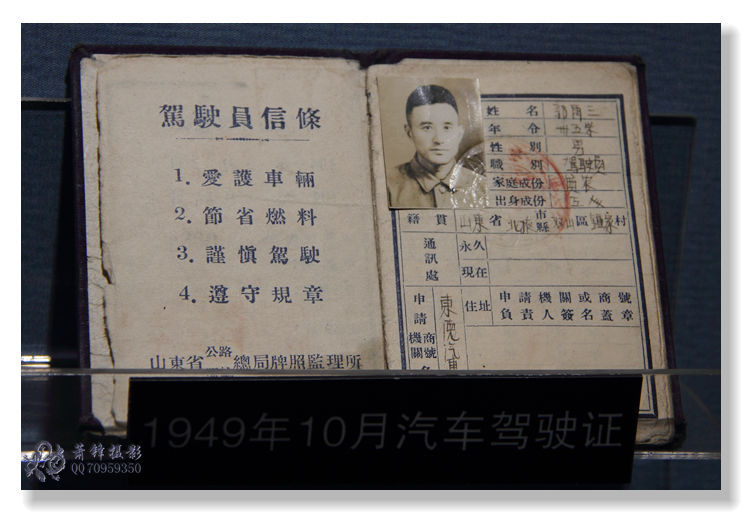 駕駛員信條
1. 愛護車輛
2. 節省燃料
3. 謹慎駕駛
4. 遵守規章
山東省公路總局牌照監理所
姓名
年令 卅五歲
性別 男
職別 駕駛員
家庭成份
出身成份
籍貫 山東省 市縣 區 村
通訊處 永久
現在
申請商號機關 住址 申請機關或商號負責人簽名或蓋章
1949年10月汽车驾驶证
菁鋒攝影
QQ70959350